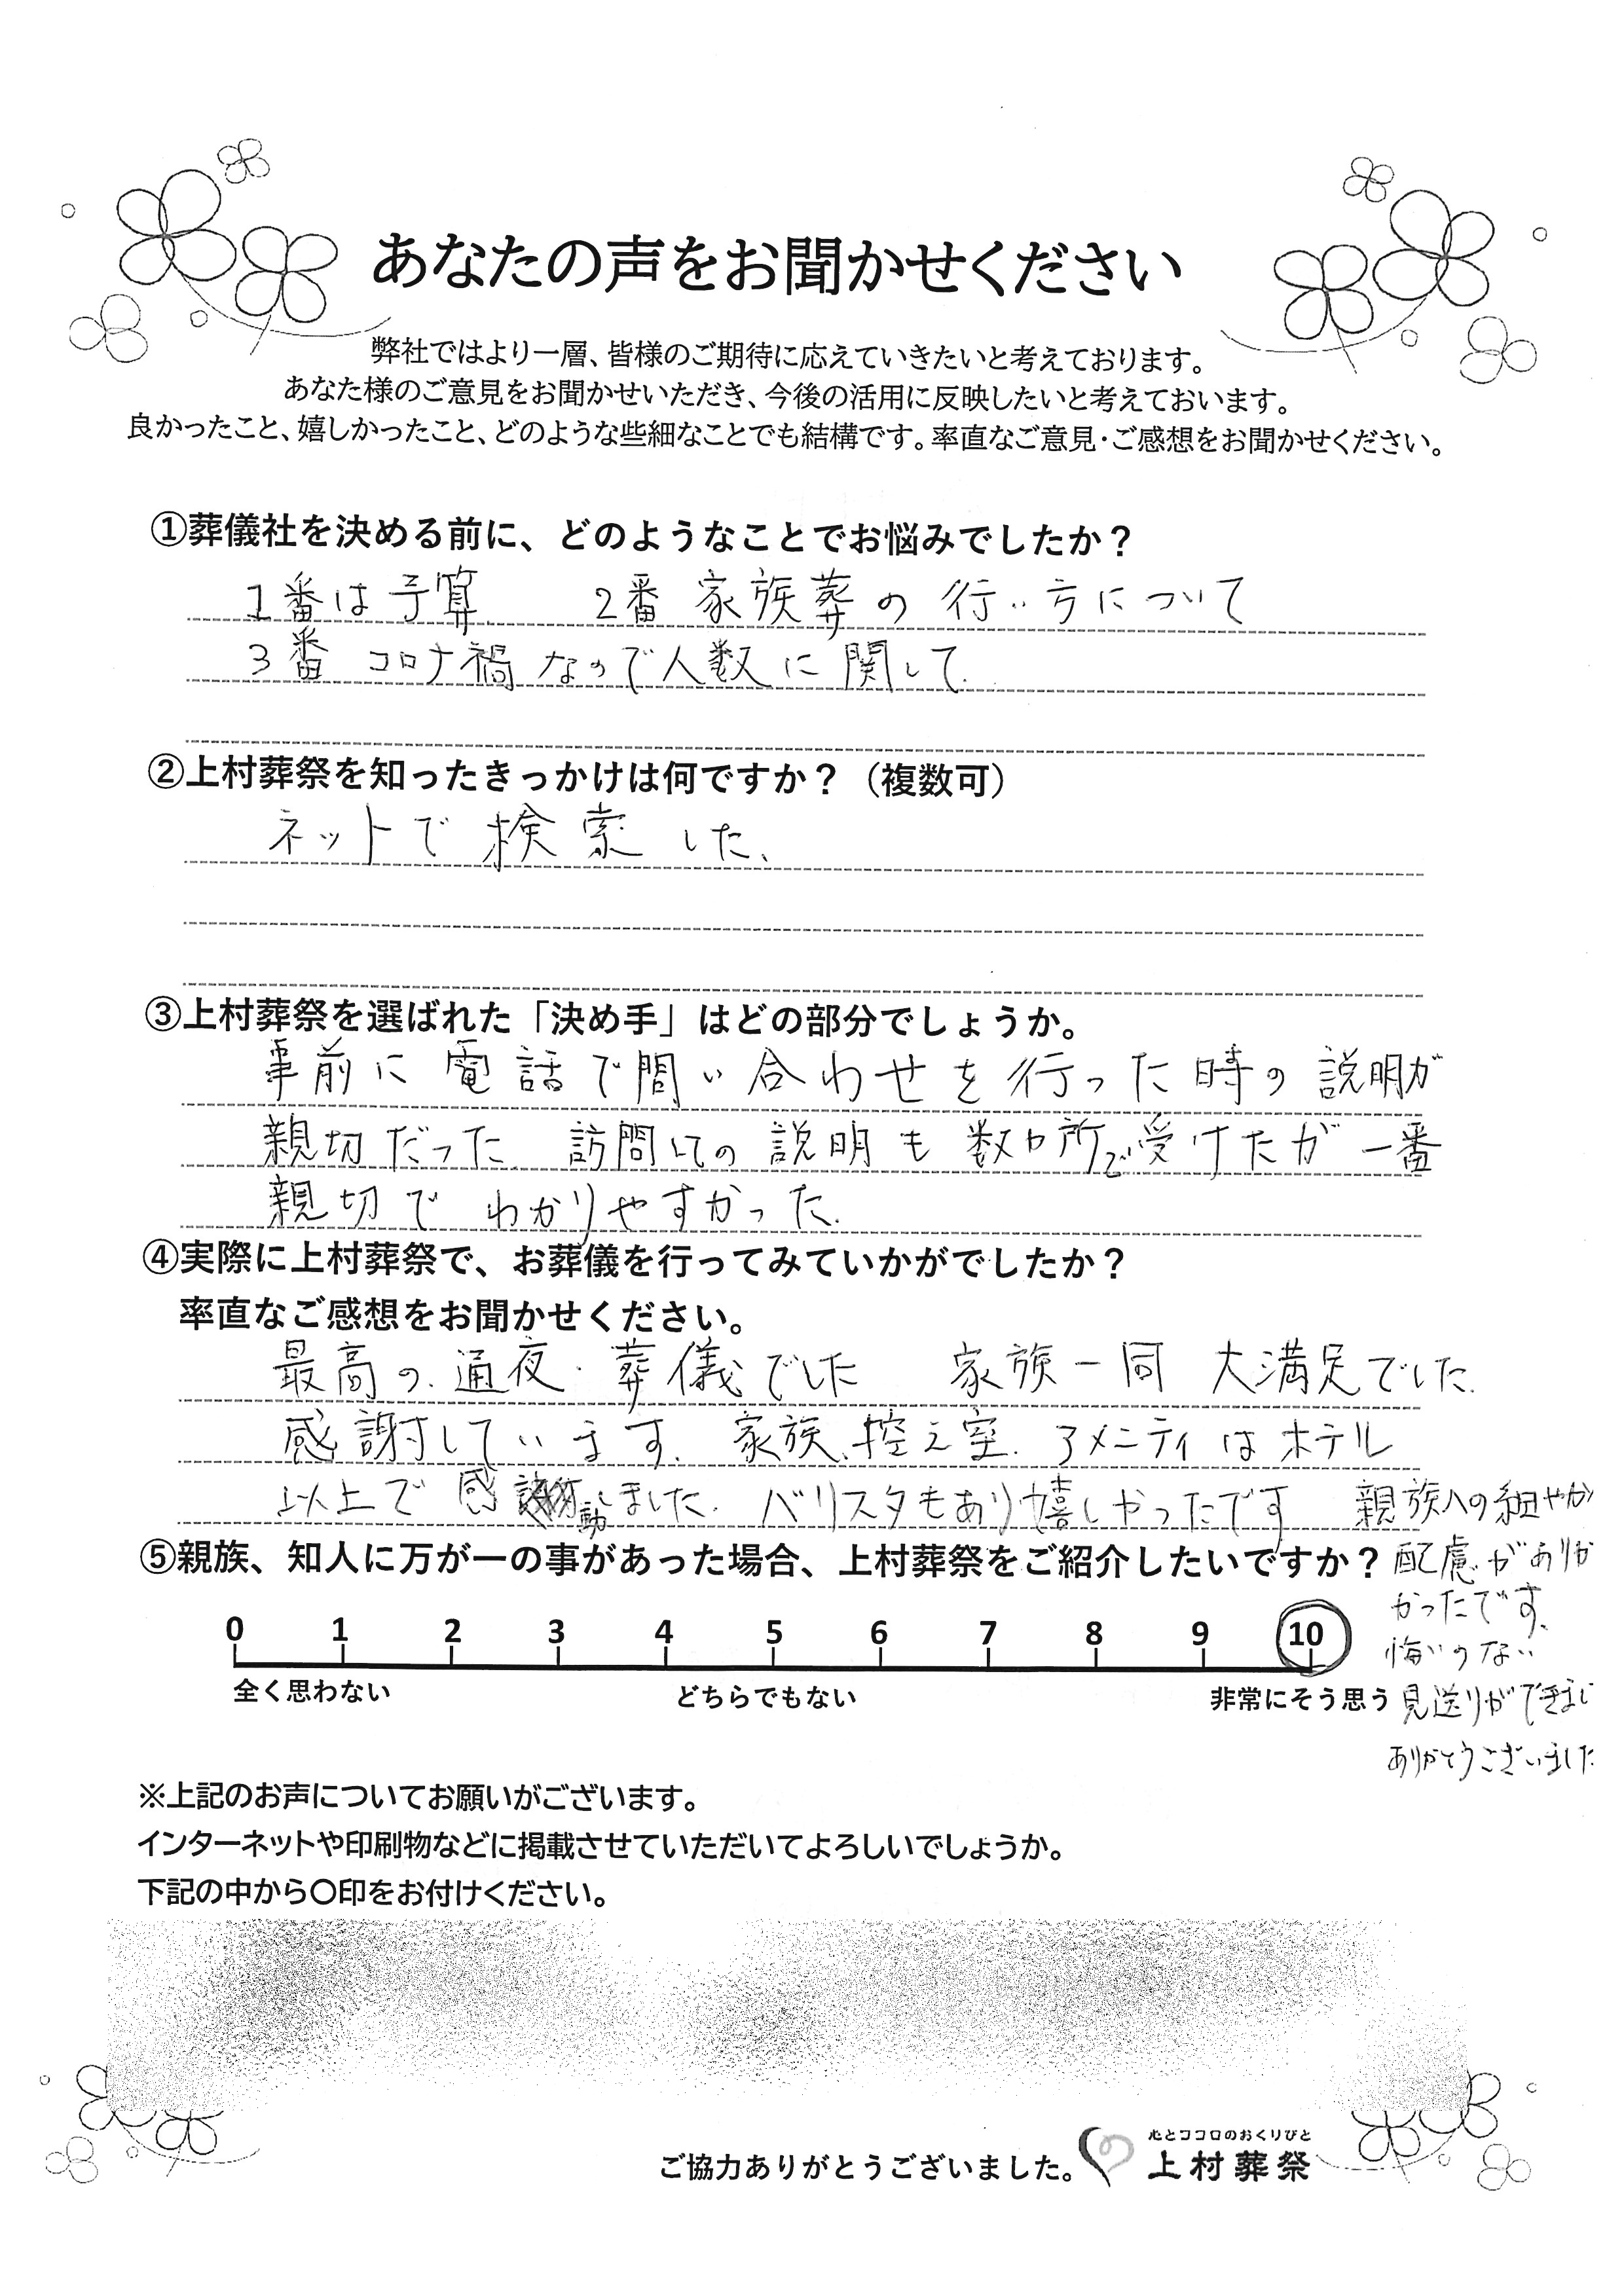 あなたの声をお聞かせください
弊社ではより一層、皆様のご期待に応えていきたいと考えております。
あなた様のご意見をお聞かせいただき、今後の活用に反映したいと考えておいます。
良かったこと、嬉しかったこと、どのような些細なことでも結構です。率直なご意見・ご感想をお聞かせください。
①葬儀社を決める前に、どのようなことでお悩みでしたか？
1番は予算 2番 家族葬の行い方について
3番 コロナ禍なので人数に関して.
②上村葬祭を知ったきっかけは何ですか？（複数可）
ネットで検索した、
③上村葬祭を選ばれた「決め手」はどの部分でしょうか。
事前に電話で問い合わせを行った時の説明が
親切だった. 訪問しての説明も数カ所で受けたが一番
親切でわかりやすかった.
④実際に上村葬祭で、お葬儀を行ってみていかがでしたか？
率直なご感想をお聞かせください。
最高の通夜・葬儀でした 家族一同 大満足でした.
感謝しています. 家族控え室. アメニティはホテル
以上で感動しました. バリスタもあり嬉しかったです 親族への細やか
配慮がありが
かったです、
悔いのない
見送りができまし
ありがとうございました
⑤親族、知人に万が一の事があった場合、上村葬祭をご紹介したいですか？
0 1 2 3 4 5 6 7 8 9 10
全く思わない どちらでもない 非常にそう思う
※上記のお声についてお願いがございます。
インターネットや印刷物などに掲載させていただいてよろしいでしょうか。
下記の中から〇印をお付けください。
ご協力ありがとうございました。
心とココロのおくりびと
上村葬祭